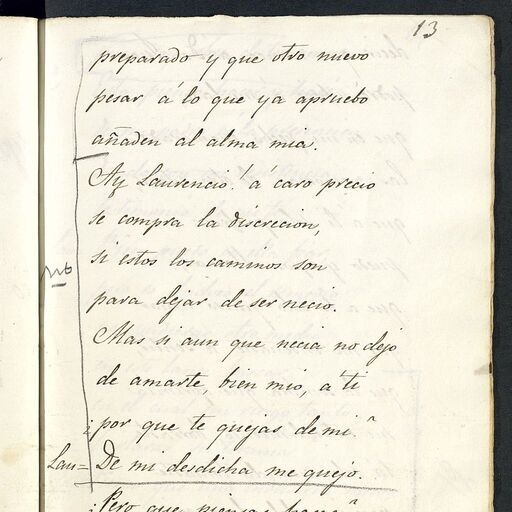 13
preparado y que otro nuevo
pesar á lo que ya apruebo
añaden al alma mia.
Ay Laurencio! á caro precio
se compra la discrecion,
si estos los caminos son
no
para dejar de ser necio.
Mas si aun que necia no dejo
de amarte, bien mio, á ti
¿por que te quejas de mi?
Lau= De mi desdicha me quejo.
¿Pero que